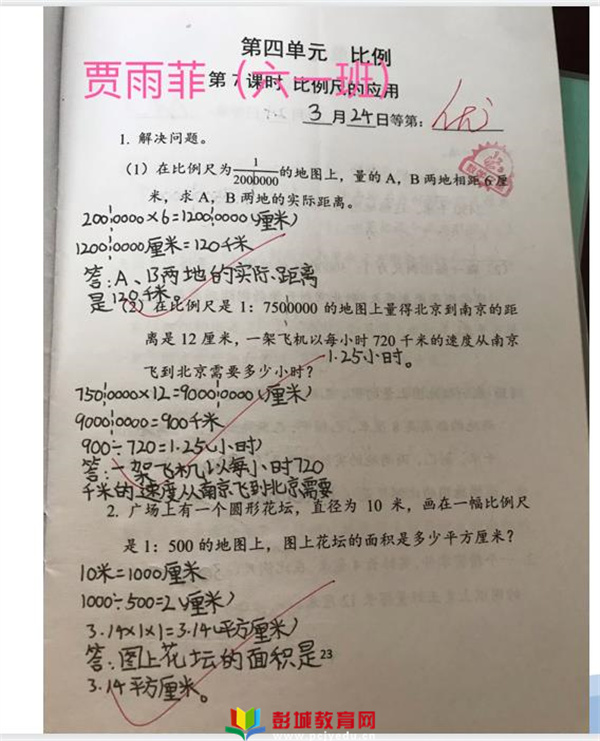 第四单元 比例
贾雨菲(六一班)
第7课时 比例尺的应用
3月24日等第:优
1. 解决问题。
(1)在比例尺为1/2000000的地图上,量的A,B两地相距6厘
米,求A,B两地的实际距离。
2000000×6=12000000(厘米)
12000000厘米=120千米
答:A、B两地的实际距离
是120千米。
(2)在比例尺是1:7500000的地图上量得北京到南京的距
离是12厘米,一架飞机以每小时720千米的速度从南京
飞到北京需要多少小时?
1.25小时。
7500000×12=90000000(厘米)
90000000=900千米
900÷720=1.25(小时)
答:一架飞机以每小时720
千米的速度从南京飞到北京需要
2. 广场上有一个圆形花坛,直径为10米,画在一幅比例尺
是1:500的地图上,图上花坛的面积是多少平方厘米?
10米=1000厘米
1000÷500=2(厘米)
3.14×1×1=3.14(平方厘米)
答:图上花坛的面积是
23
3.14平方厘米。
彭城教育网